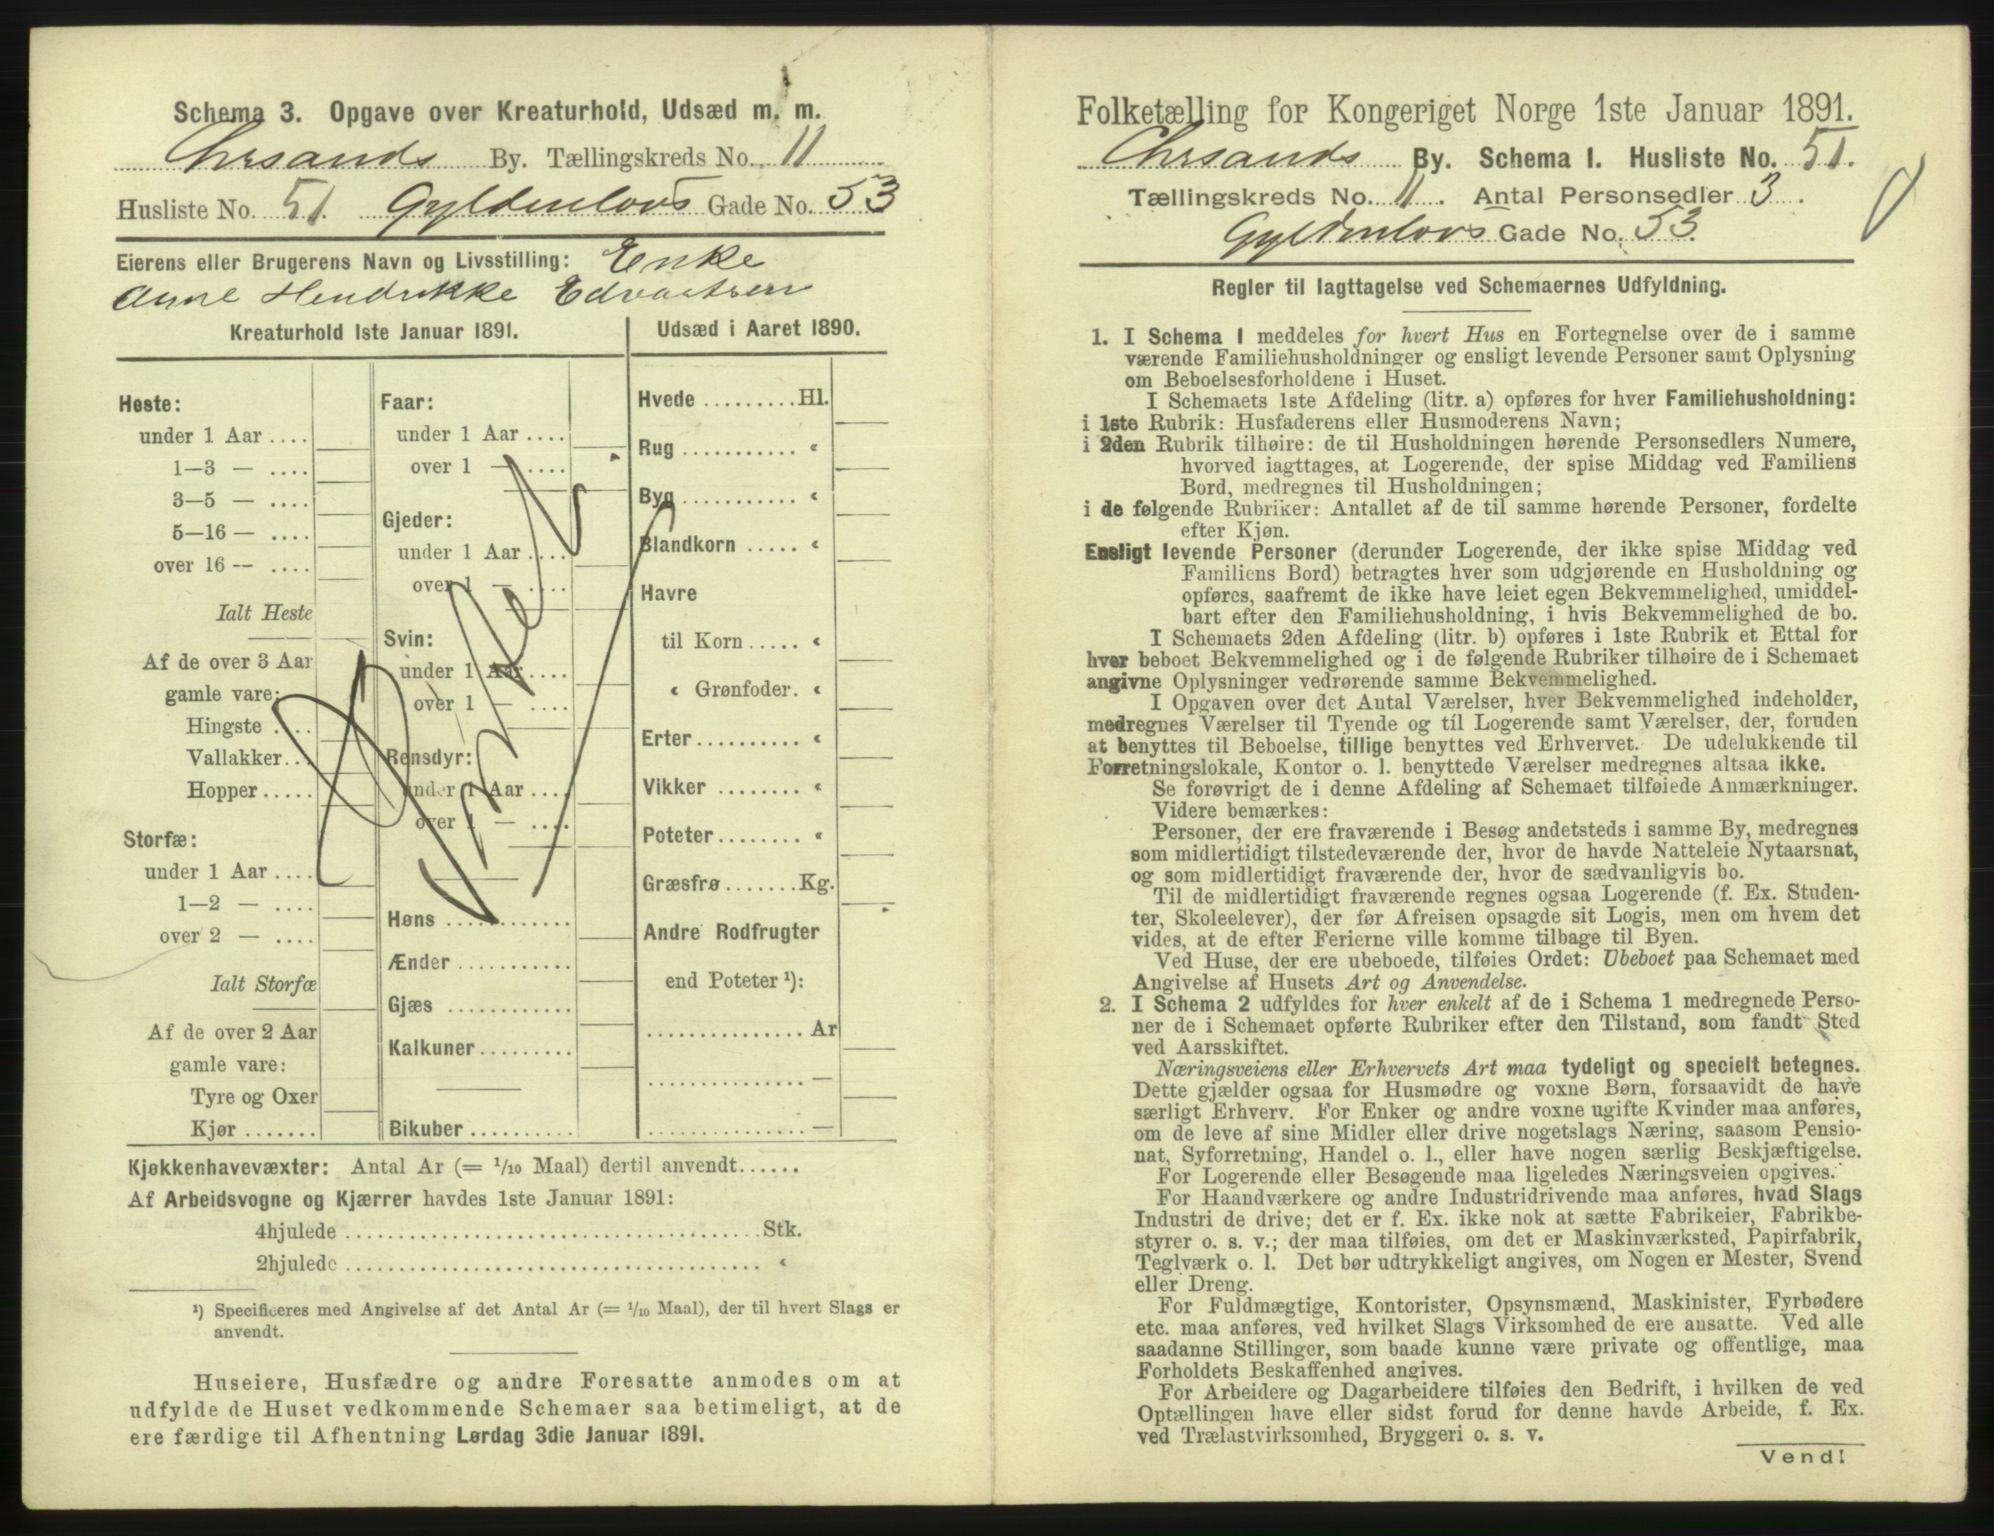 Schema 3. Opgave over Kreaturhold, Udsæd m. m.
Chrsands By. Tællingskreds No. 11
Husliste No. 51. Gyldenlovs Gade No. 53
Eierens eller Brugerens Navn og Livsstilling: Enke
Anne Hendrikke Edvartsen
Kreaturhold 1ste Januar 1891.
Heste:
under 1 Aar ....
1—3 — ....
3—5 — ....
5—16 — ....
over 16 — ....
Ialt Heste
Af de over 3 Aar
gamle vare:
Hingste ....
Vallakker...
Hopper.....
Storfæ:
under 1 Aar ....
1—2 — ....
over 2 — ....
Ialt Storfæ
Af de over 2 Aar
gamle vare:
Tyre og Oxer
Kjør .......
Faar:
under 1 Aar ....
over 1 — ....
Gjeder:
under 1 Aar ....
over 1 — ....
Svin:
under 1 Aar ....
over 1 — ....
Rensdyr:
under 1 Aar ....
over 1 — ....
Høns ...........
Ænder ..........
Gjæs ...........
Kalkuner........
Bikuber.........
Udsæd i Aaret 1890.
Hvede .........Hl.
Rug ........... «
Byg ........... «
Blandkorn ..... «
Havre
til Korn ..... «
« Grønfoder. «
Erter.......... «
Vikker ........ «
Poteter........ «
Græsfrø.......Kg.
Andre Rodfrugter
end Poteter ¹):
............... Ar
............... —
............... —
Kjøkkenhavevæxter: Antal Ar (= 1/10 Maal) dertil anvendt......
Af Arbeidsvogne og Kjærrer havdes 1ste Januar 1891:
4hjulede ......................................Stk.
2hjulede ...................................... «
¹) Specificeres med Angivelse af det Antal Ar (= 1/10 Maal), der til hvert Slags er
anvendt.
Huseiere, Husfædre og andre Foresatte anmodes om at
udfylde de Huset vedkommende Schemaer saa betimeligt, at de
ere færdige til Afhentning Lørdag 3die Januar 1891.
Folketælling for Kongeriget Norge 1ste Januar 1891.
Chrsands By. Schema 1. Husliste No. 51.
Tællingskreds No. 11. Antal Personsedler 3.
Gyldenlovs Gade No. 53.
Regler til Iagttagelse ved Schemaernes Udfyldning.
1. I Schema 1 meddeles for hvert Hus en Fortegnelse over de i samme
værende Familiehusholdninger og ensligt levende Personer samt Oplysning
om Beboelsesforholdene i Huset.
I Schemaets 1ste Afdeling (litr. a) opføres for hver Familiehusholdning:
i 1ste Rubrik: Husfaderens eller Husmoderens Navn;
i 2den Rubrik tilhøire: de til Husholdningen hørende Personsedlers Numere,
hvorved iagttages, at Logerende, der spise Middag ved Familiens
Bord, medregnes til Husholdningen;
i de følgende Rubriker: Antallet af de til samme hørende Personer, fordelte
efter Kjøn.
Ensligt levende Personer (derunder Logerende, der ikke spise Middag ved
Familiens Bord) betragtes hver som udgjørende en Husholdning og
opføres, saafremt de ikke have leiet egen Bekvemmelighed, umiddel-
bart efter den Familiehusholdning, i hvis Bekvemmelighed de bo.
I Schemaets 2den Afdeling (litr. b) opføres i 1ste Rubrik et Ettal for
hver beboet Bekvemmelighed og i de følgende Rubriker tilhøire de i Schemaet
angivne Oplysninger vedrørende samme Bekvemmelighed.
I Opgaven over det Antal Værelser, hver Bekvemmelighed indeholder,
medregnes Værelser til Tyende og til Logerende samt Værelser, der, foruden
at benyttes til Beboelse, tillige benyttes ved Erhvervet. De udelukkende til
Forretningslokale, Kontor o. l. benyttede Værelser medregnes altsaa ikke.
Se forøvrigt de i denne Afdeling af Schemaet tilføiede Anmærkninger.
Videre bemærkes:
Personer, der ere fraværende i Besøg andetsteds i samme By, medregnes
som midlertidigt tilstedeværende der, hvor de havde Natteleie Nytaarsnat,
og som midlertidigt fraværende der, hvor de sædvanligvis bo.
Til de midlertidigt fraværende regnes ogsaa Logerende (f. Ex. Studen-
ter, Skoleelever), der før Afreisen opsagde sit Logis, men om hvem det
vides, at de efter Ferierne ville komme tilbage til Byen.
Ved Huse, der ere ubeboede, tilføies Ordet: Ubeboet paa Schemaet med
Angivelse af Husets Art og Anvendelse.
2. I Schema 2 udfyldes for hver enkelt af de i Schema 1 medregnede Perso-
ner de i Schemaet opførte Rubriker efter den Tilstand, som fandt Sted
ved Aarsskiftet.
Næringsveiens eller Erhvervets Art maa tydeligt og specielt betegnes.
Dette gjælder ogsaa for Husmødre og voxne Børn, forsaavidt de have
særligt Erhverv. For Enker og andre voxne ugifte Kvinder maa anføres,
om de leve af sine Midler eller drive nogetslags Næring, saasom Pensio-
nat, Syforretning, Handel o. l., eller have nogen særlig Beskjæftigelse.
For Logerende eller Besøgende maa ligeledes Næringsveien opgives.
For Haandværkere og andre Industridrivende maa anføres, hvad Slags
Industri de drive; det er f. Ex. ikke nok at sætte Fabrikeier, Fabrikbe-
styrer o. s. v.; der maa tilføies, om det er Maskinværksted, Papirfabrik,
Teglværk o. l. Det bør udtrykkeligt angives, om Nogen er Mester, Svend
eller Dreng.
For Fuldmægtige, Kontorister, Opsynsmænd, Maskinister, Fyrbødere
etc. maa anføres, ved hvilket Slags Virksomhed de ere ansatte. Ved alle
saadanne Stillinger, som baade kunne være private og offentlige, maa
Forholdets Beskaffenhed angives.
For Arbeidere og Dagarbeidere tilføies den Bedrift, i hvilken de ved
Optællingen have eller sidst forud for denne havde Arbeide, f. Ex.
ved Trælastvirksomhed, Bryggeri o. s. v.
Vend!